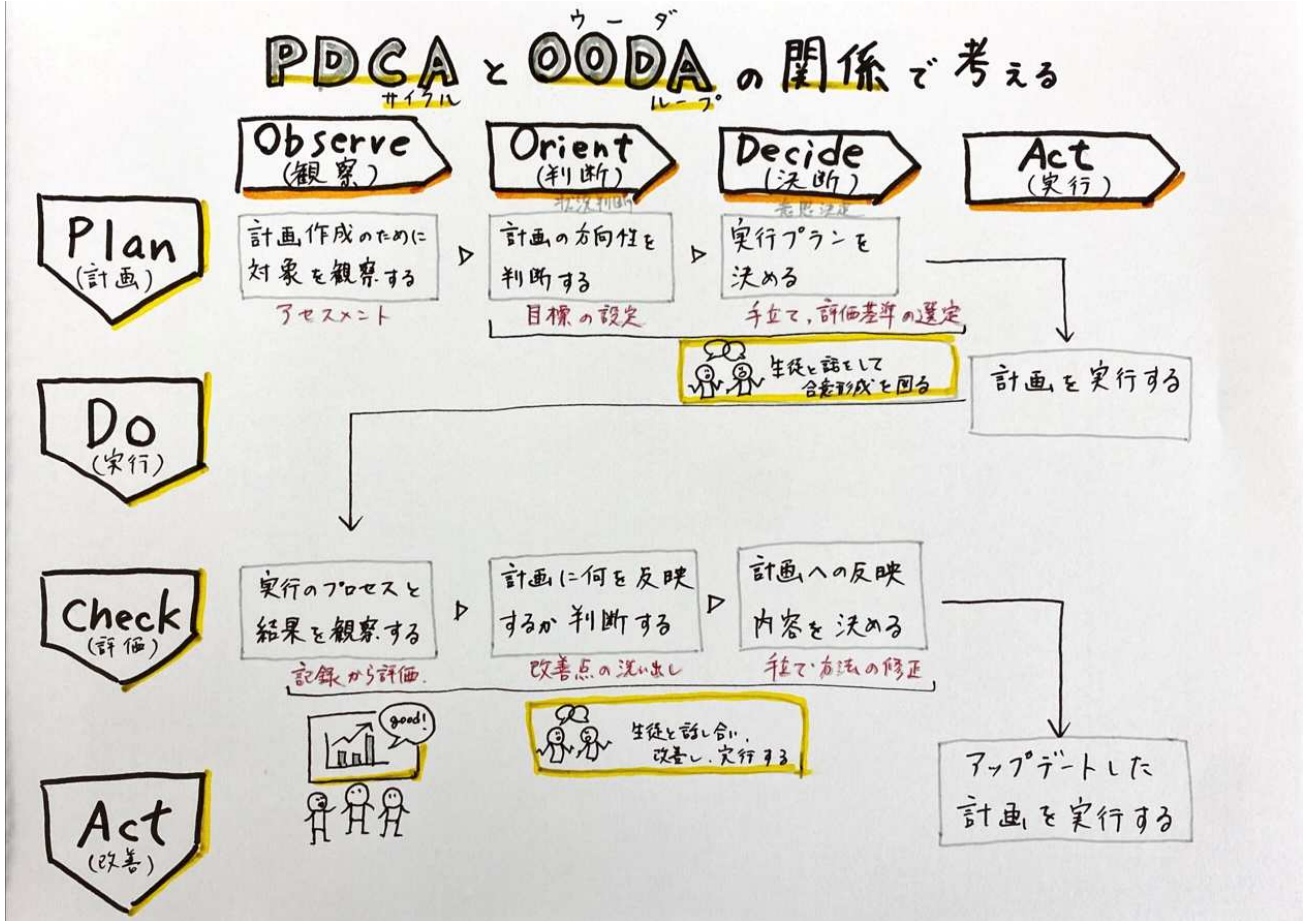 ウーダ
PDCAとOODAの関係で考える
サイクル
ループ
Observe
(観察)
Orient
(判断)
状況判断
Decide
(決断)
意思決定
Act
(実行)
Plan
(計画)
計画作成のために
対象を観察する
アセスメント
計画の方向性を
判断する
目標の設定
実行プランを
決める
手立て,評価基準の選定
生徒と話をして
合意形成を図る
計画を実行する
Do
(実行)
Check
(評価)
実行のプロセスと
結果を観察する
記録から評価.
計画に何を反映
するか判断する
改善点の洗い出し
計画への反映
内容を決める
手立て・方法の修正
good!
生徒と話し合い,
改善し、実行する
アップデートした
計画を実行する
Act
(改善)